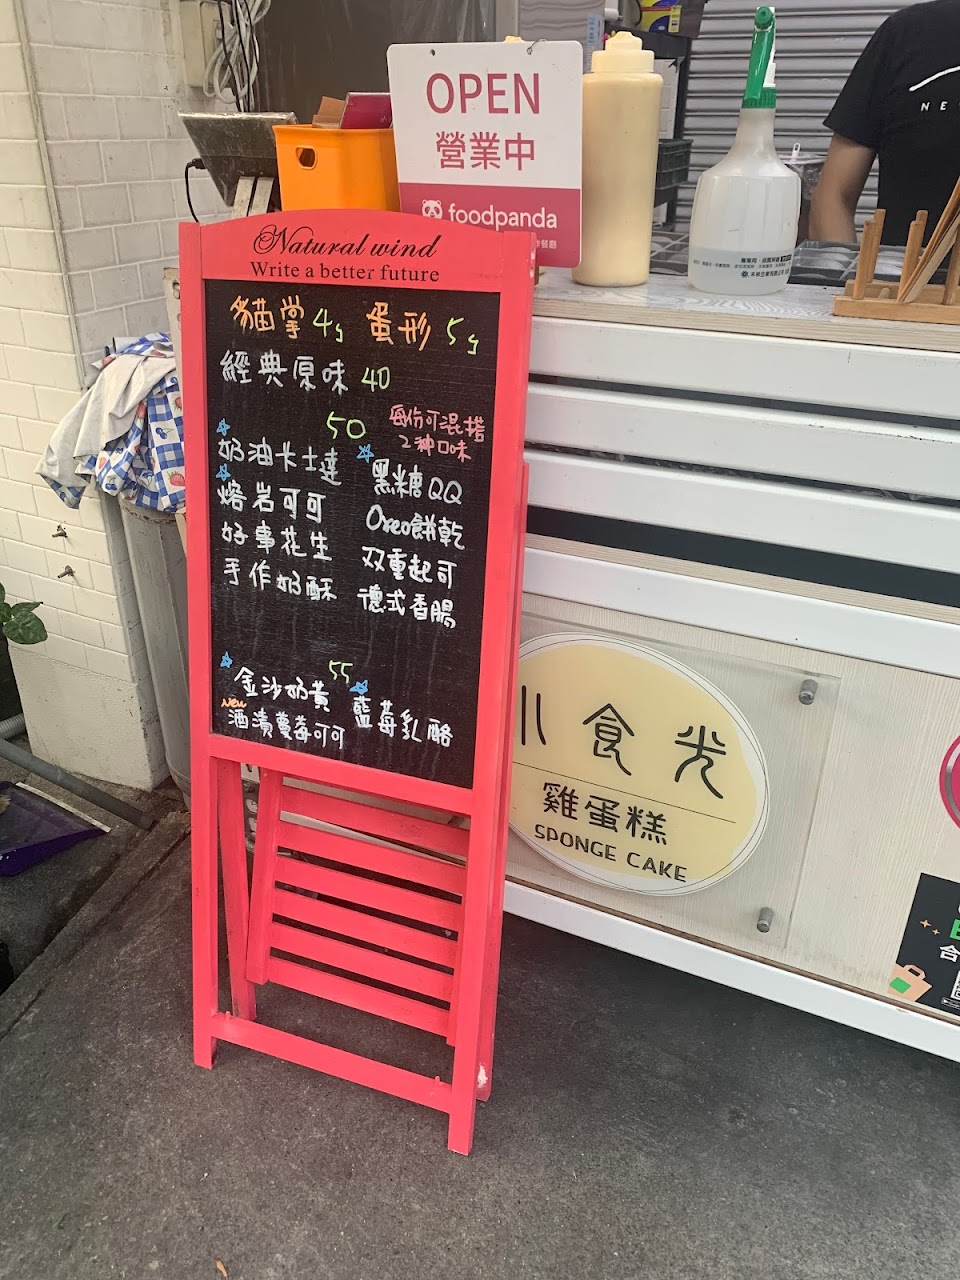 OPEN
營業中
foodpanda
Natural wind
Write a better future
貓掌 4g 蛋形 5g
經典原味 40
50
每份可混搭
2种口味
奶油卡士達
黑糖QQ
熔岩可可
Oreo餅乾
好事花生
双重起可
手作奶酥
德式香腸
55
金沙奶黃
藍莓乳酪
New
酒漬蔓莓可可
小食光
雞蛋糕
SPONGE CAKE
NE
合